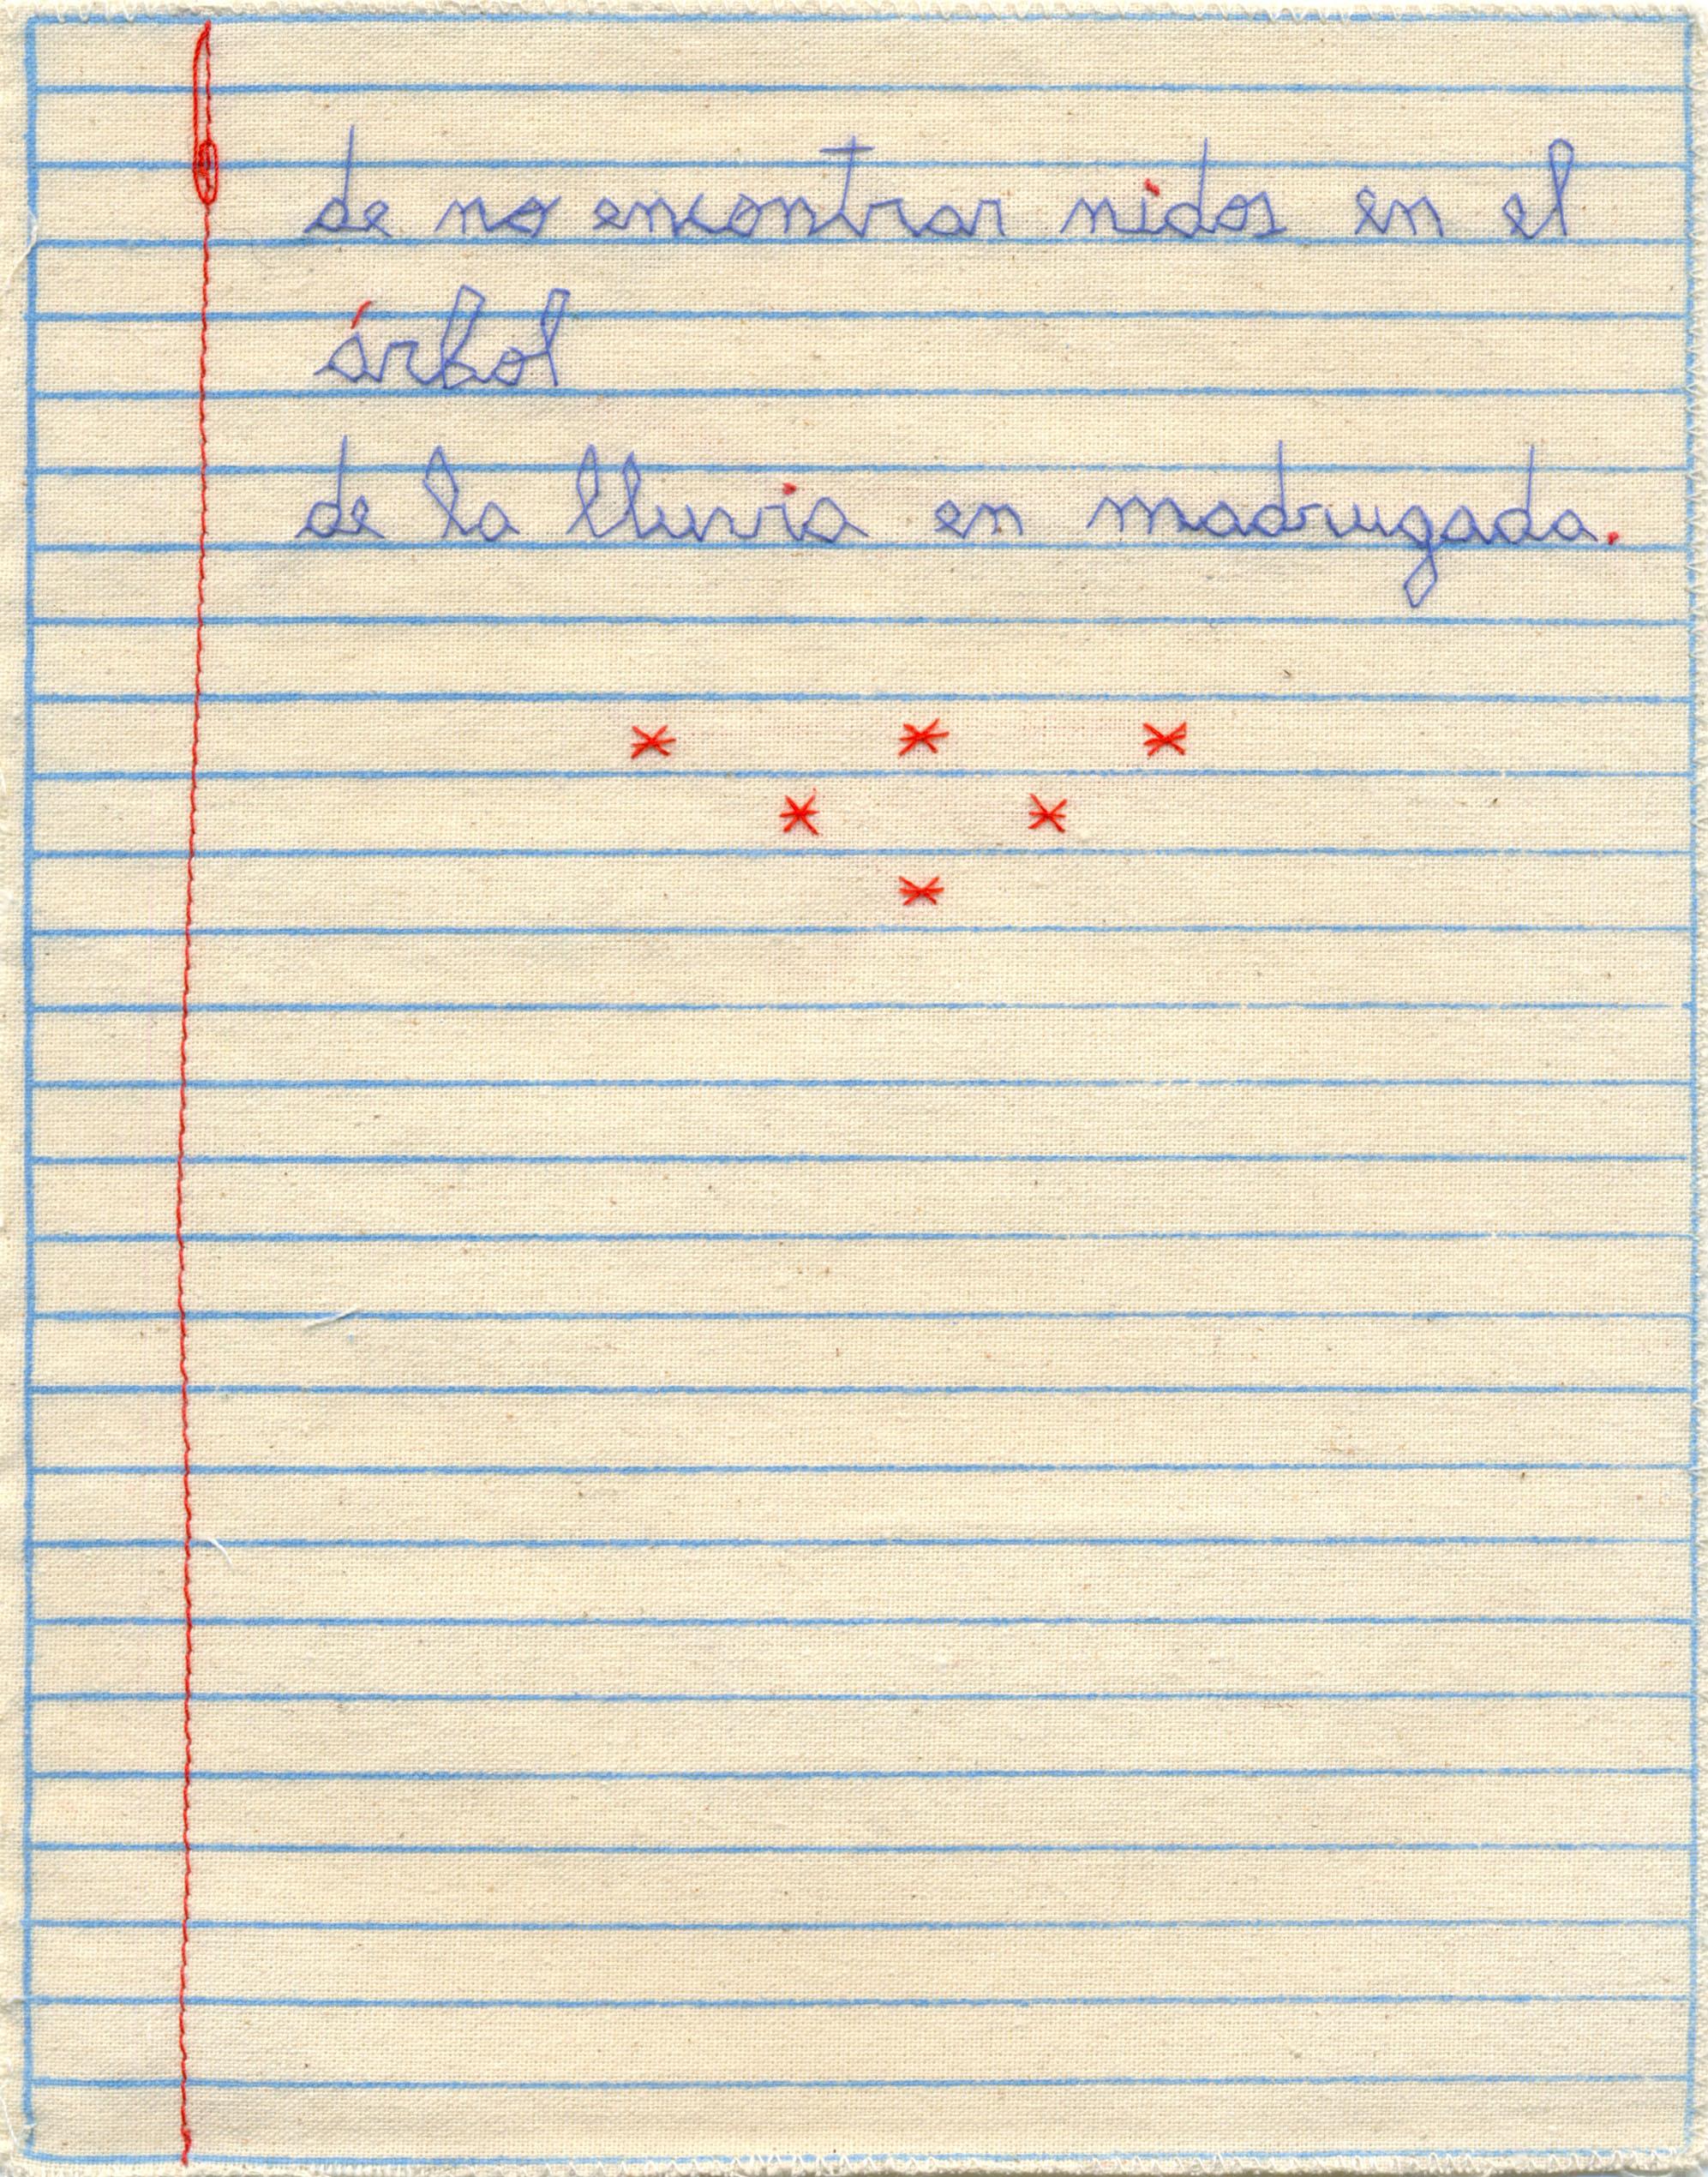 de no encontrar nidos en el
árbol
de la lluvia en madrugada.